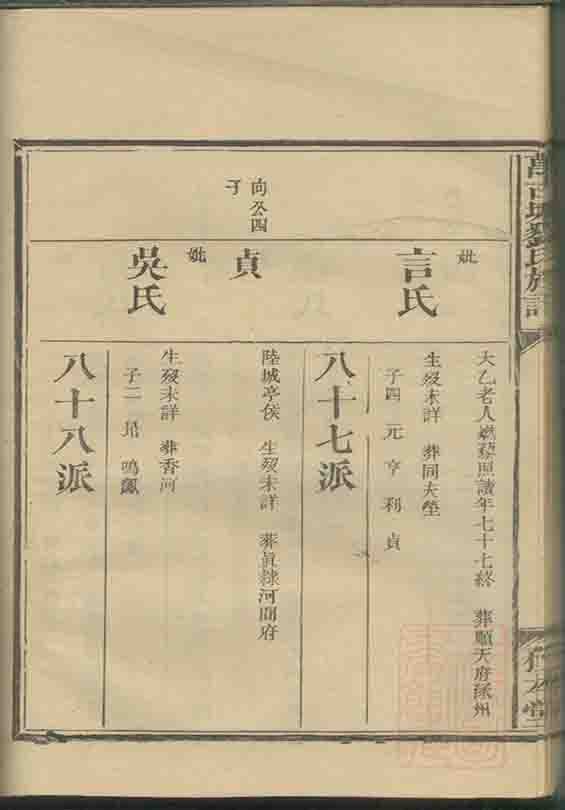 劉氏族譜
大乙老人燃藜照讀年七十七終 葬順天府涿州
妣
言氏
生歿未詳 葬同夫塋
子四 元 亨 利 貞
八十七派
向公四
子
貞
陸城亭侯 生歿未詳 葬直隸河間府
妣
吳氏
生歿未詳 葬香河
子二 鳴鳳
八十八派